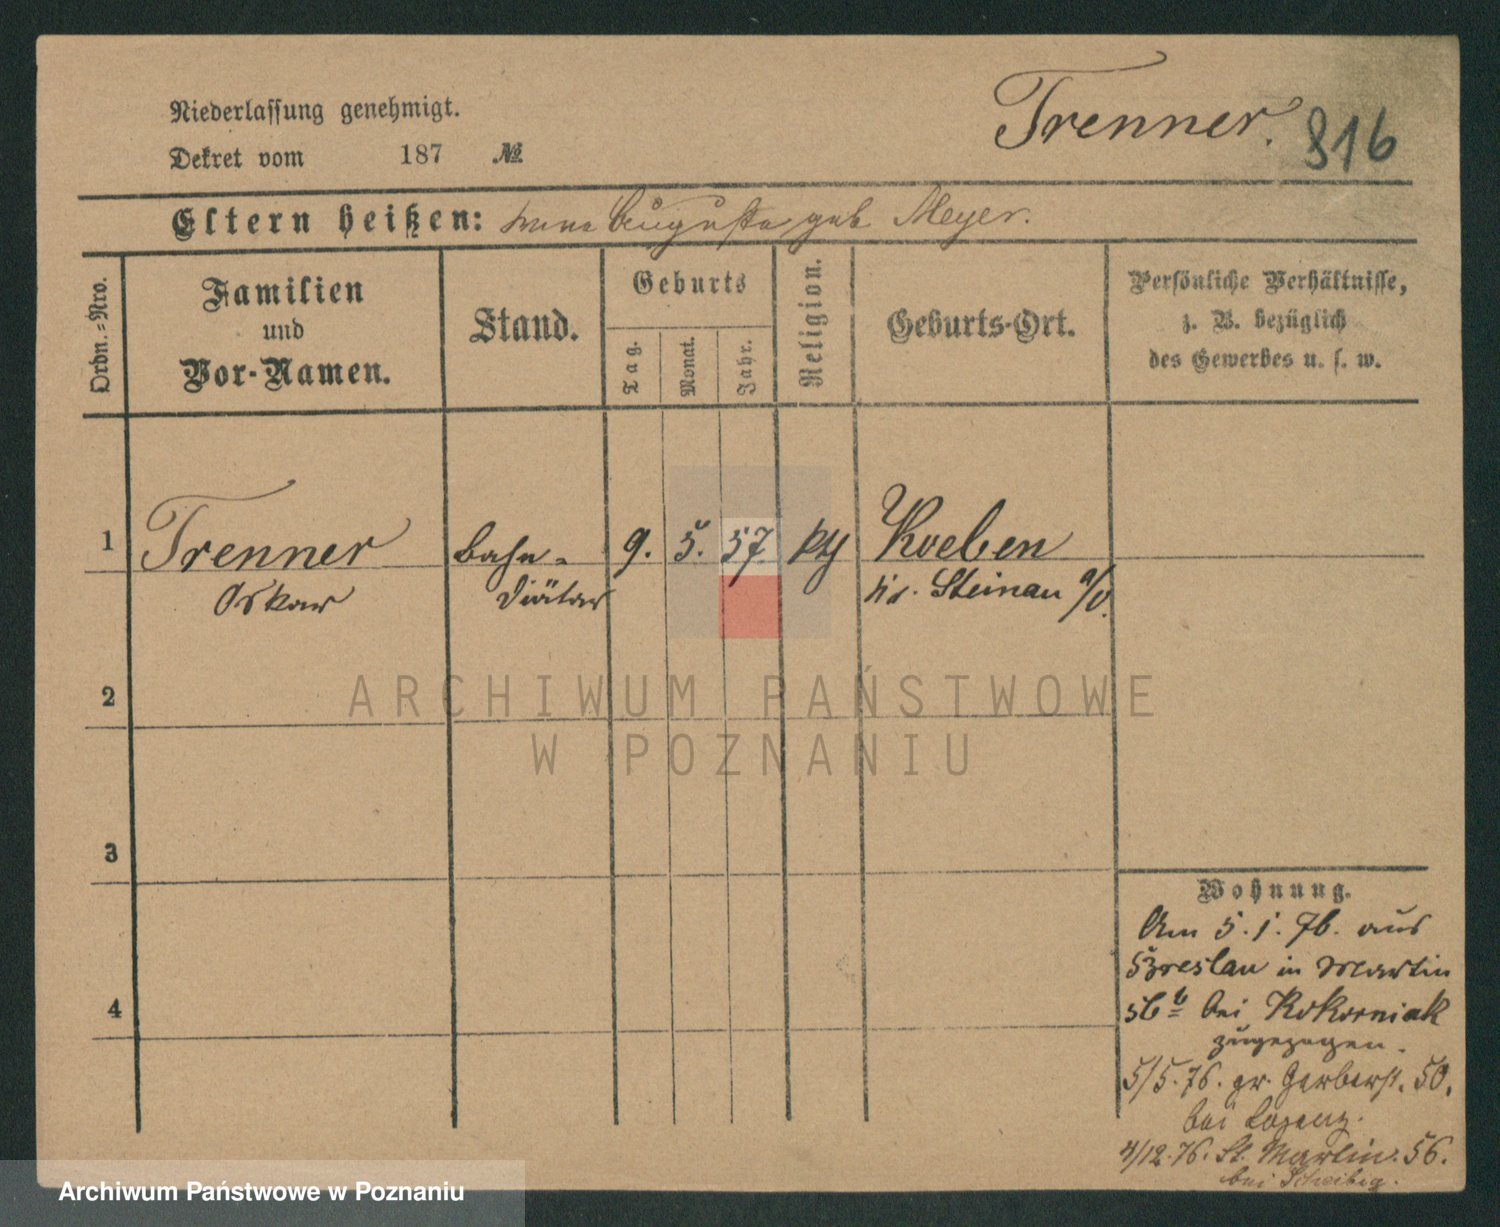 Trenner. 816
Niederlassung genehmigt.
Dekret vom 187 №
Eltern heißen: Augusta geb Meyer.
Ordn.=Nro.
Familien
und
Vor-Namen.
Stand.
Geburts
Tag.
Monat.
Jahr.
Religion.
Geburts-Ort.
Persönliche Verhältnisse,
z. B. bezüglich
des Gewerbes u. s. w.
1 Trenner Bahn- 9. 5. 57. Koeben
Oskar Diätar Steinau a/O.
2
3
4
Wohnung.
Am 5. 1. 76. aus
Breslau in Martin
56 b bei Kokorniak
zugezogen.
5/5.76. gr. Gerberst. 50.
bei Lozenz.
4/12.76. St. Martin. 56.
bei Scheibig.
ARCHIWUM PAŃSTWOWE
W POZNANIU
Archiwum Państwowe w Poznaniu